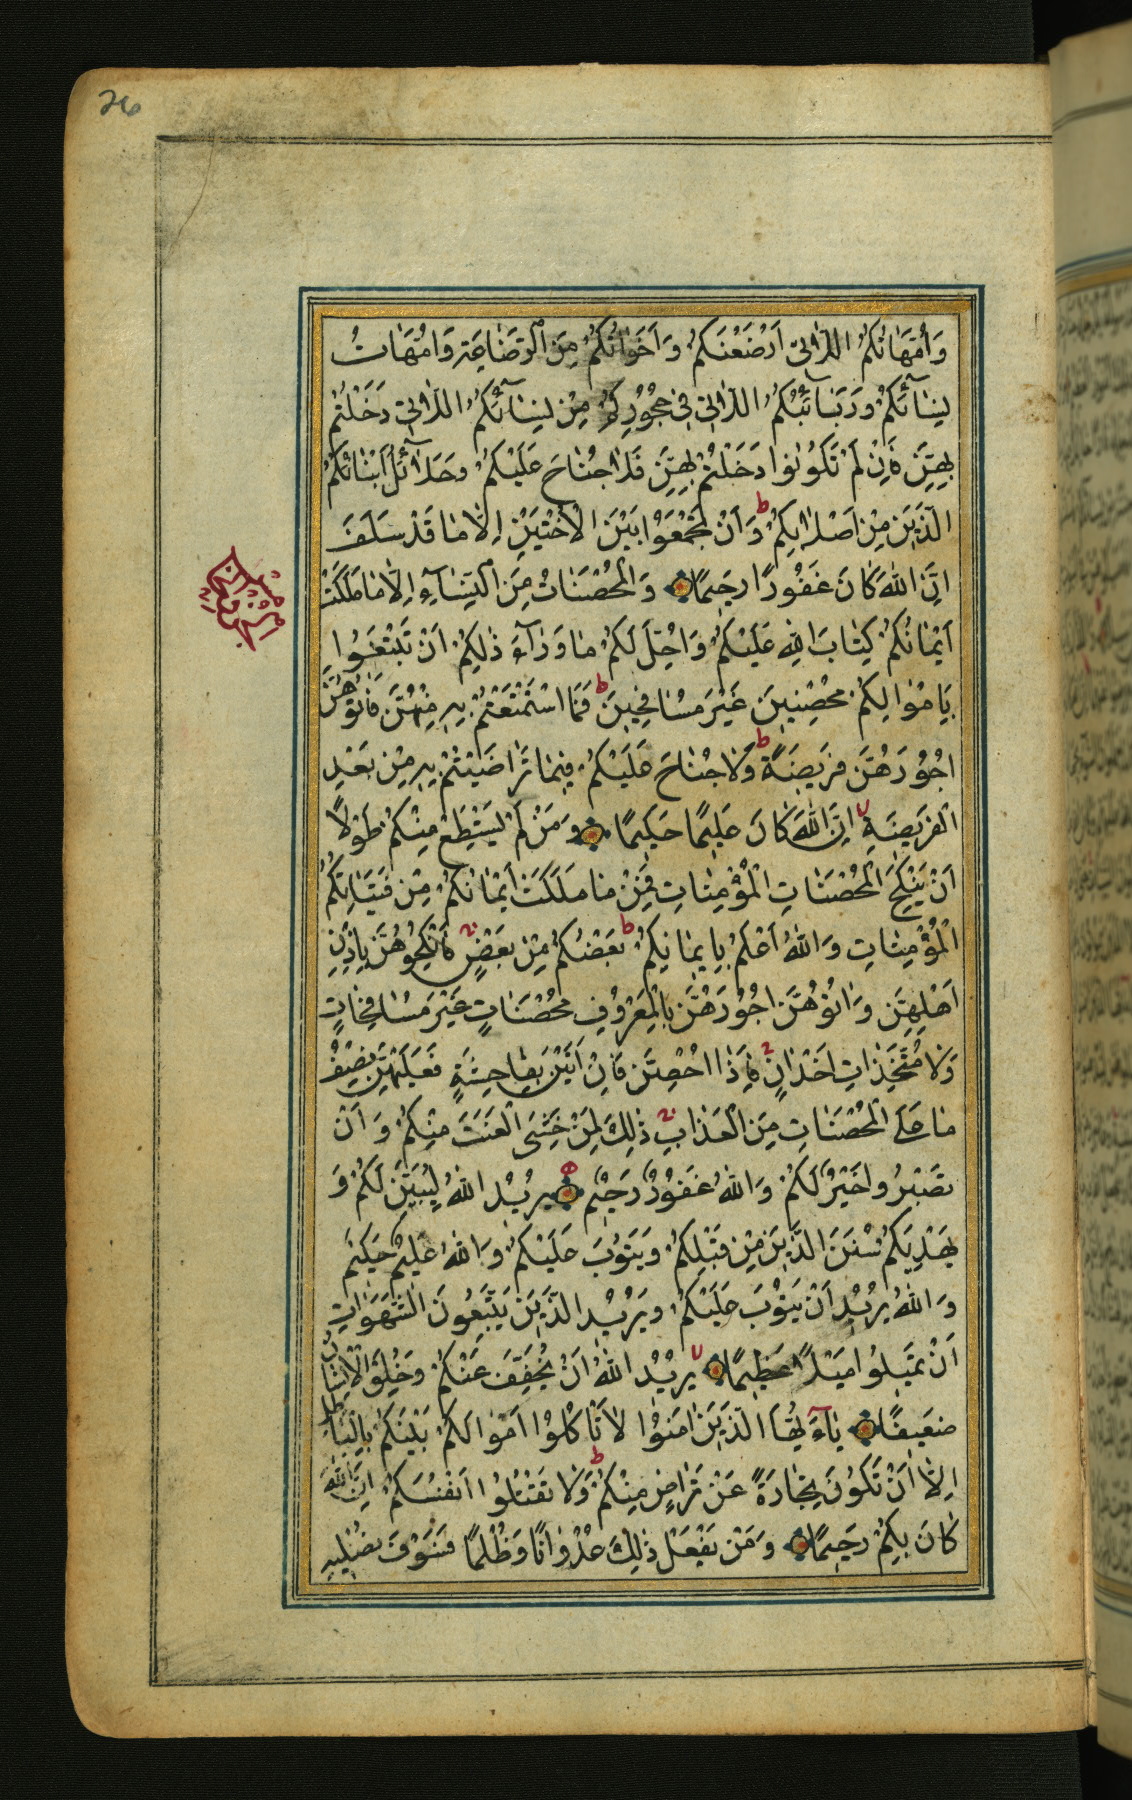 26
وَاُمَّهَاتُكُمُ اللَّاتِى اَرْضَعْنَكُمْ وَاَخَوَاتُكُمْ مِنَ الرَّضَاعَةِ وَاُمَّهَاتُ
نِسَآئِكُمْ وَرَبَآئِبُكُمُ اللَّاتِى فِى حُجُورِكُمْ مِنْ نِسَآئِكُمُ اللَّاتِى دَخَلْتُمْ
بِهِنَّ فَاِنْ لَمْ تَكُونُوا دَخَلْتُمْ بِهِنَّ فَلَا جُنَاحَ عَلَيْكُمْ وَحَلَآئِلُ اَبْنَائِكُمُ
الَّذِينَ مِنْ اَصْلَابِكُمْ ط وَاَنْ تَجْمَعُوا بَيْنَ الْاُخْتَيْنِ اِلَّا مَا قَدْ سَلَفَ
اِنَّ اللهَ كَانَ غَفُورًا رَحِيمًا وَالْمُحْصَنَاتُ مِنَ النِّسَآءِ اِلَّا مَا مَلَكَتْ
اَيْمَانُكُمْ كِتَابَ اللهِ عَلَيْكُمْ وَاُحِلَّ لَكُمْ مَا وَرَآءَ ذٰلِكُمْ اَنْ تَبْتَغُوا
بِاَمْوَالِكُمْ مُحْصِنِينَ غَيْرَ مُسَافِحِينَ ط فَمَا اسْتَمْتَعْتُمْ بِهِ مِنْهُنَّ فَاٰتُوهُنَّ
اُجُورَهُنَّ فَرِيضَةً ط وَلَا جُنَاحَ عَلَيْكُمْ فِيمَا تَرَاضَيْتُمْ بِهِ مِنْ بَعْدِ
الْفَرِيضَةِ اِنَّ اللهَ كَانَ عَلِيمًا حَكِيمًا وَمَنْ لَمْ يَسْتَطِعْ مِنْكُمْ طَوْلًا
اَنْ يَنْكِحَ الْمُحْصَنَاتِ الْمُؤْمِنَاتِ فَمِنْ مَا مَلَكَتْ اَيْمَانُكُمْ مِنْ فَتَيَاتِكُمُ
الْمُؤْمِنَاتِ وَاللهُ اَعْلَمُ بِاِيمَانِكُمْ ط بَعْضُكُمْ مِنْ بَعْضٍ فَانْكِحُوهُنَّ بِاِذْنِ
اَهْلِهِنَّ وَاٰتُوهُنَّ اُجُورَهُنَّ بِالْمَعْرُوفِ مُحْصَنَاتٍ غَيْرَ مُسَافِحَاتٍ
وَلَا مُتَّخِذَاتِ اَخْدَانٍ فَاِذَا اُحْصِنَّ فَاِنْ اَتَيْنَ بِفَاحِشَةٍ فَعَلَيْهِنَّ نِصْفُ
مَا عَلَى الْمُحْصَنَاتِ مِنَ الْعَذَابِ ذٰلِكَ لِمَنْ خَشِىَ الْعَنَتَ مِنْكُمْ وَاَنْ
تَصْبِرُوا خَيْرٌ لَكُمْ وَاللهُ غَفُورٌ رَحِيمٌ يُرِيدُ اللهُ لِيُبَيِّنَ لَكُمْ وَ
يَهْدِيَكُمْ سُنَنَ الَّذِينَ مِنْ قَبْلِكُمْ وَيَتُوبَ عَلَيْكُمْ وَاللهُ عَلِيمٌ حَكِيمٌ
وَاللهُ يُرِيدُ اَنْ يَتُوبَ عَلَيْكُمْ وَيُرِيدُ الَّذِينَ يَتَّبِعُونَ الشَّهَوَاتِ
اَنْ تَمِيلُوا مَيْلًا عَظِيمًا يُرِيدُ اللهُ اَنْ يُخَفِّفَ عَنْكُمْ وَخُلِقَ الْاِنْسَانُ
ضَعِيفًا يَآءَيُّهَا الَّذِينَ اٰمَنُوا لَا تَاْكُلُوا اَمْوَالَكُمْ بَيْنَكُمْ بِالْبَاطِلِ
اِلَّا اَنْ تَكُونَ تِجَارَةً عَنْ تَرَاضٍ مِنْكُمْ ط وَلَا تَقْتُلُوا اَنْفُسَكُمْ اِنَّ اللهَ
كَانَ بِكُمْ رَحِيمًا وَمَنْ يَفْعَلْ ذٰلِكَ عُدْوَانًا وَظُلْمًا فَسَوْفَ نُصْلِيهِ